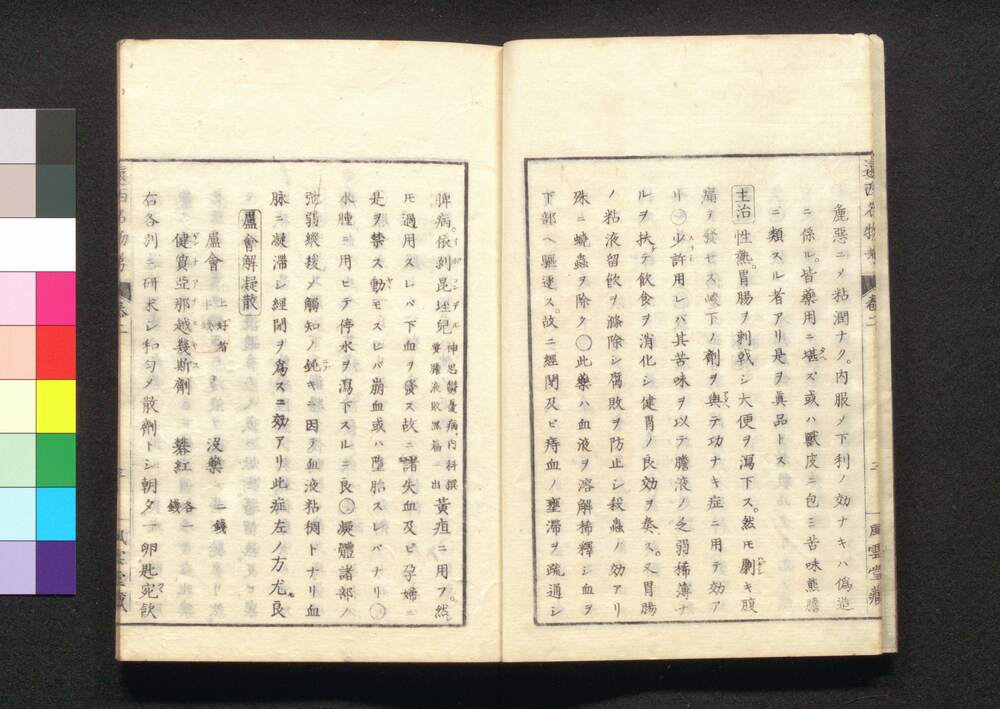 麁惡ニメ粘潤ナク。内服メ下利ノ効ナキハ偽造
ニ係ル。皆藥用ニ堪ズ或ハ獸皮ニ包ミ苦味熊膽
ニ類スル者アリ是ヲ眞品トス
主治 性熱。胃腸ヲ刺戟シ大便ヲ瀉下ス。然モ劇キ腹
痛ヲ發セス峻下ノ劑ヲ與テ功ナキ症ニ用テ効ア
リ○少許用レバ其苦味ヲ以テ膽液ノ乏弱稀薄ナ
ルヲ扶テ飲食ヲ消化シ健胃ノ良効ヲ奏ス。又胃腸
ノ粘液留飲ヲ滌除シ腐敗ヲ防止シ殺蟲ノ効アリ
殊ニ蟯蟲ヲ除ク○此藥ハ血液ヲ溶解稀釋シ血ヲ
下部ヘ驅逐ス。故ニ經閉及ヒ痔血ノ壅滞ヲ疏通シ
風雲堂藏
卷二
脾病。依剝昆垤兒 神思鬱憂病内科撰要雜液敗黒福ニ出 黃疸ニ用フ。然
モ過用スレバ下血ヲ發ス故ニ諸失血及ヒ孕婦ニ
是ヲ禁ス動モスレバ崩血或ハ墮胎スレバナリ○
水腫ニ用ヒテ停水ヲ瀉下スルニ良○凝體諸部ノ
弛弱緩慢メ觸知ノ鈍キニ因テ血液粘稠トナリ血
脉ニ凝滞シ經閉ヲ為スニ効アリ此症左ノ方尤良
蘆會解凝散
蘆會 上好者 沒藥 各一錢
健質亞那越幾斯劑 礬紅 各一錢
右各別ニ研末シ和匀メ散劑トシ朝夕一卵匙宛飲